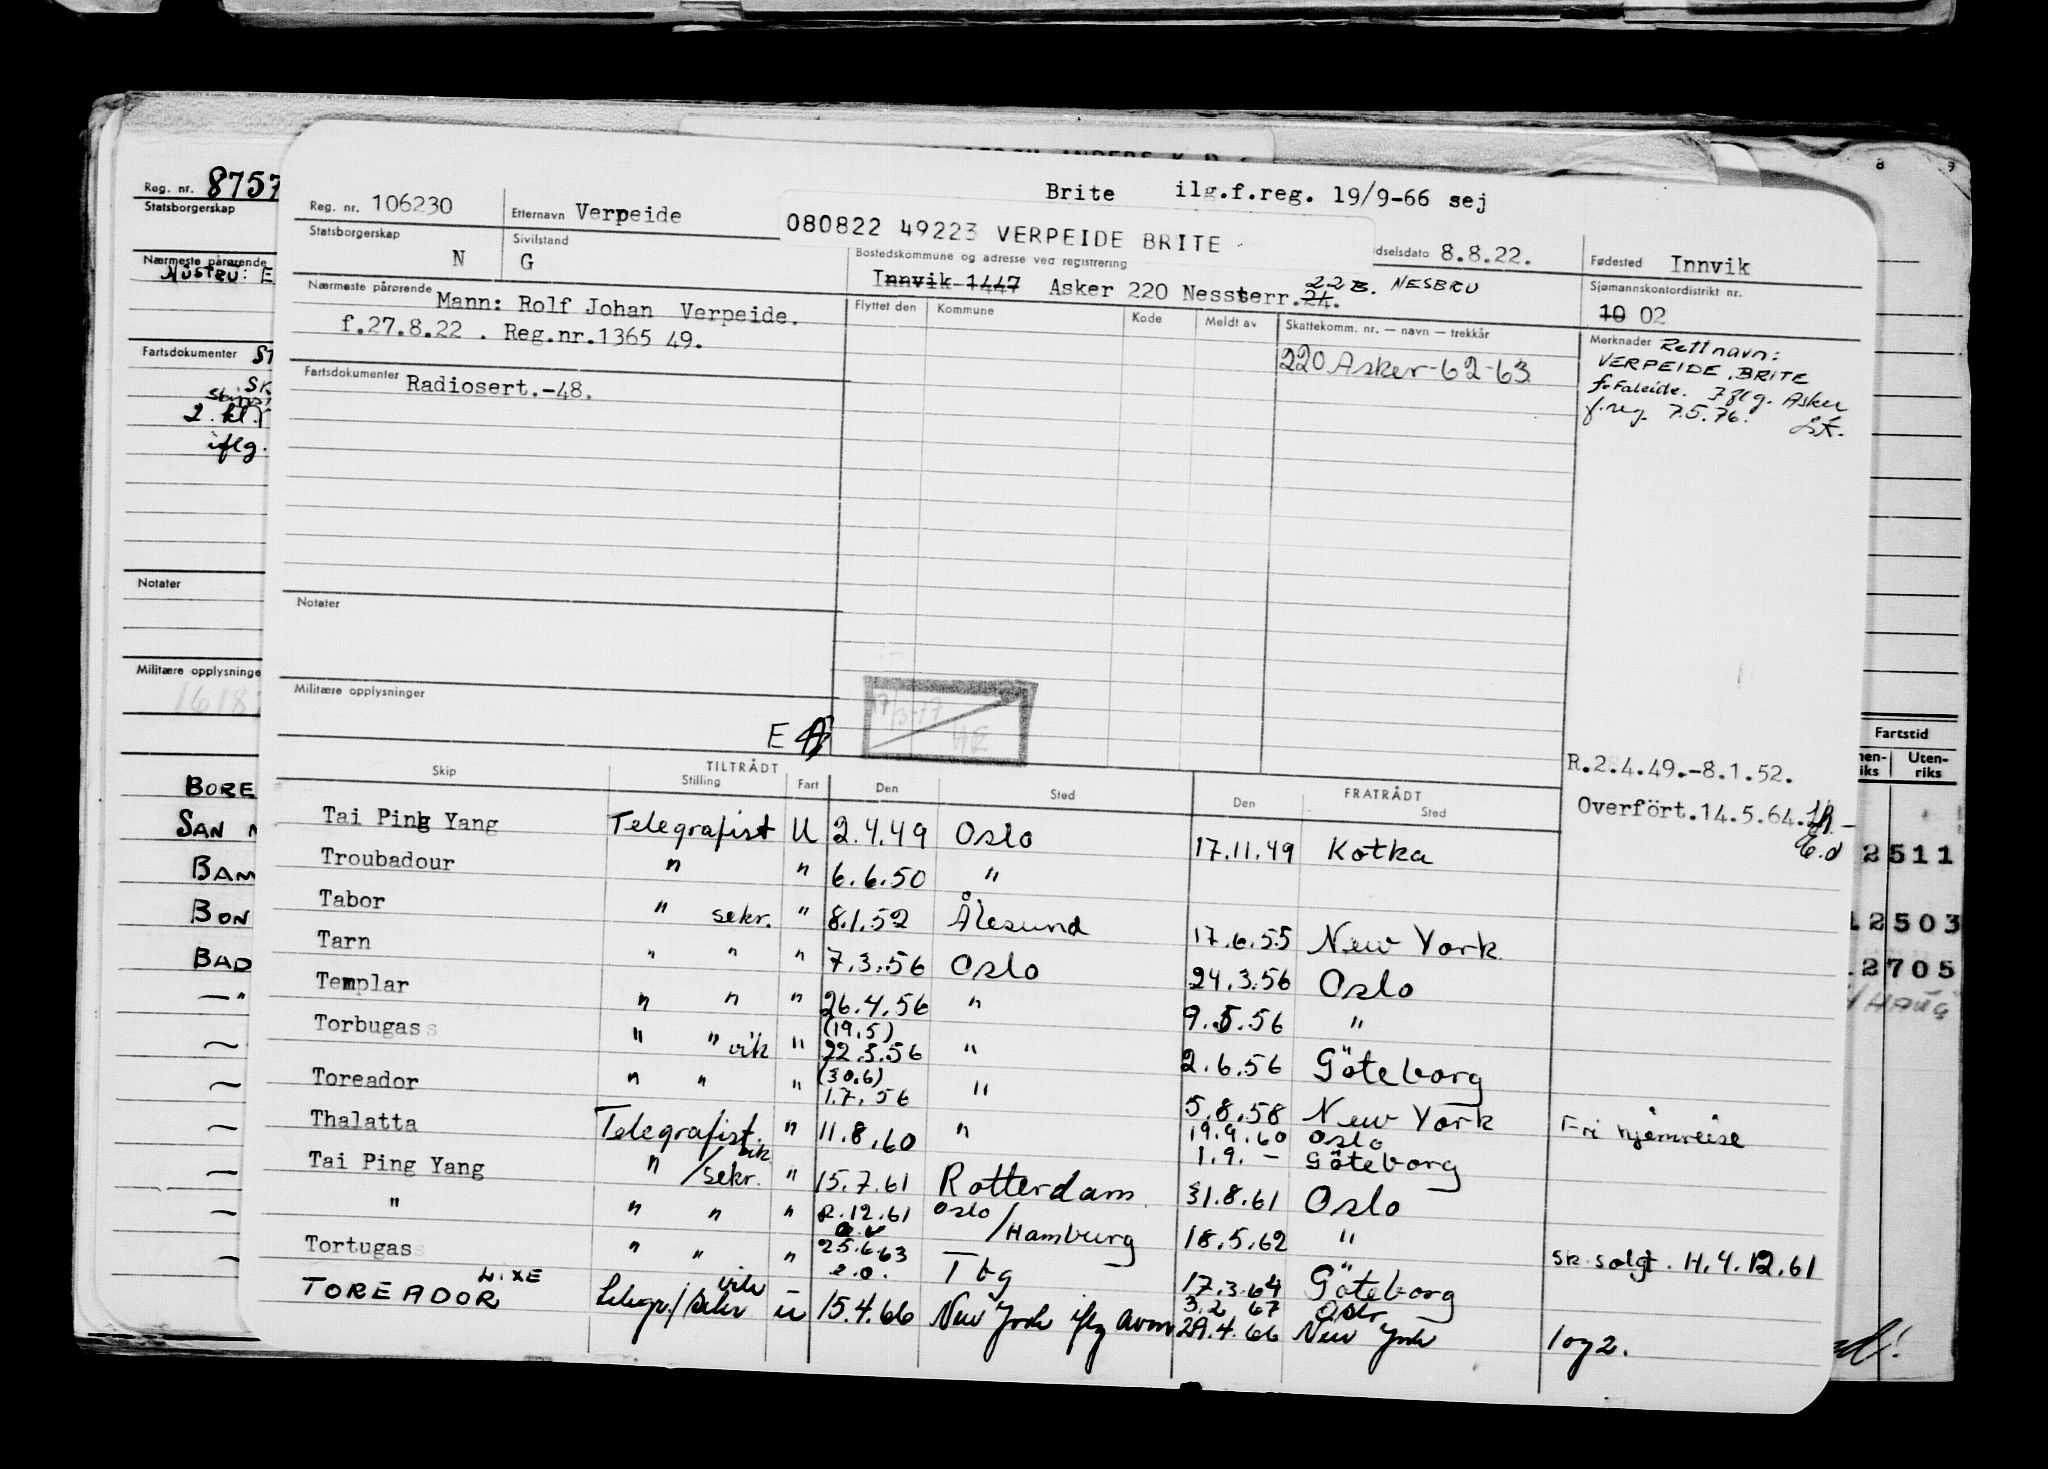 Reg. nr. 8757
Statsborgerskap
Nærmeste pårørende
Fartsdokumenter
2. kl.
iflg.
Notater
Militære opplysninger
BORE
SAN
BAM
BON
BAD
Brite ilg.f.reg. 19/9-66 sej
Reg. nr. 106230 Etternavn Verpeide
080822 49223 VERPEIDE BRITE
dselsdato 8.8.22. Fødested Innvik
Statsborgerskap N Sivilstand G
Bostedskommune og adresse ved registrering
Innvik 1447 Asker 220 Nessterr. 24. 22B. NESBRU
Sjømannskontordistrikt nr.
10 02
Nærmeste pårørende Mann: Rolf Johan Verpeide.
f.27.8.22 . Reg.nr.1365 49.
Flyttet den Kommune Kode Meldt av Skattekomm. nr. — navn — trekkår
220 Asker-62-63
Merknader Rett navn:
VERPEIDE, BRITE
f. Faleide. Iflg. Asker
f.reg. 7.5.76.
Fartsdokumenter Radiosert.-48.
Notater
Militære opplysninger
E
R.2.4.49.-8.1.52.
Overført.14.5.64.
TILTRÅDT FRATRÅDT
Skip Stilling Fart Den Sted Den Sted
Tai Ping Yang Telegrafist U 2.4.49 Oslo 17.11.49 Kotka
Troubadour " " 6.6.50 "
Tabor " sekr. " 8.1.52 Ålesund 17.6.55 New York
Tarn " " " 7.3.56 Oslo 24.3.56 Oslo
Templar " " " 26.4.56 " 9.5.56 "
Torbugas " " vik " (19.5) 22.5.56 " 2.6.56 Göteborg
Toreador " " " (30.6) 1.7.56 " 5.8.58 New York Fri hjemreise
Thalatta Telegrafist. vik " 11.8.60 " 19.9.60 Oslo
1.9. - Göteborg
Tai Ping Yang " /sekr. " 15.7.61 Rotterdam 31.8.61 Oslo
" " " " 2.12.61 Oslo/Hamburg 18.5.62 " sk. solgt. H.4.12.61
Tortugas " " " 25.6.63 Tbg 17.3.64 Göteborg
e.o. 3.2 67 Oslo
TOREADOR LIXE telegr./sekr vik u 15.4.66 New York iflg avm 29.4.66 New York 1 og 2.
8 9
Fartstid
Uten-
riks
2511
12503
2705